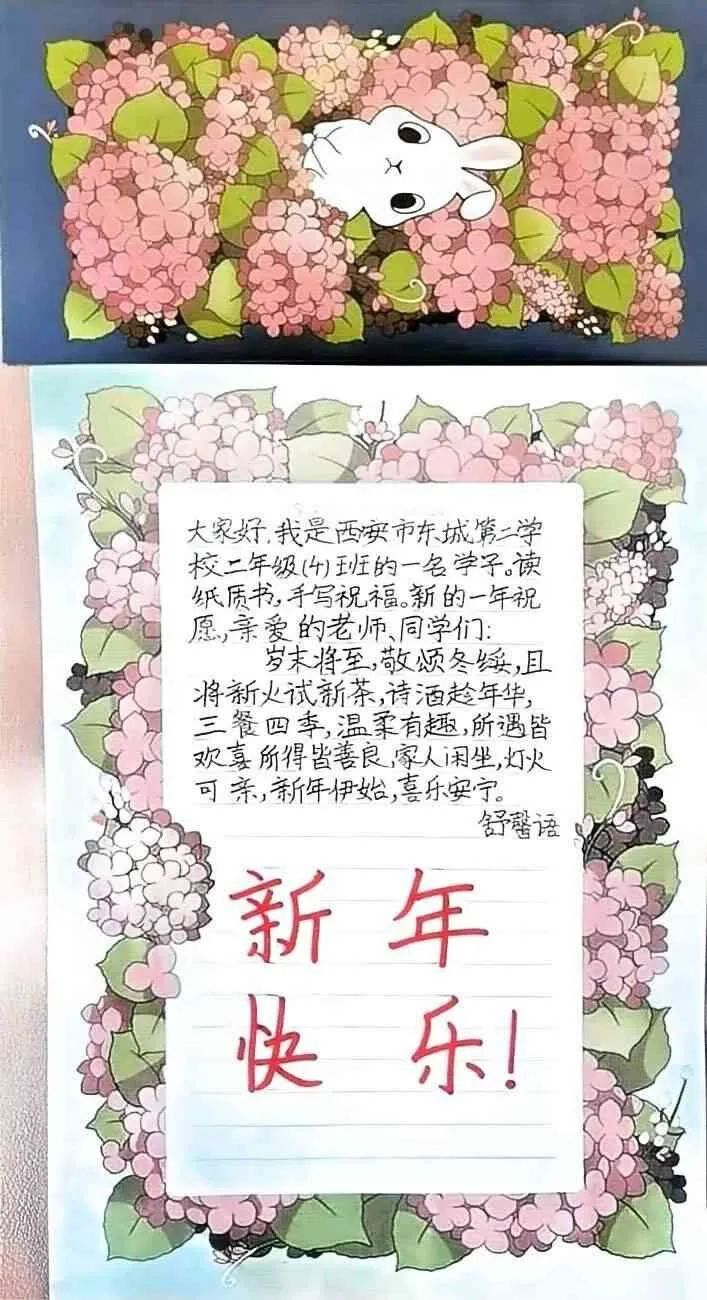 大家好,我是西安市东城第二学
校二年级(4)班的一名学子。读
纸质书,手写祝福。新的一年祝
愿,亲爱的老师、同学们:
岁末将至,敬颂冬绥,且
将新火试新茶,诗酒趁年华,
三餐四季,温柔有趣,所遇皆
欢喜所得皆善良,家人闲坐,灯火
可亲,新年伊始,喜乐安宁。
舒馨语
新年
快乐!